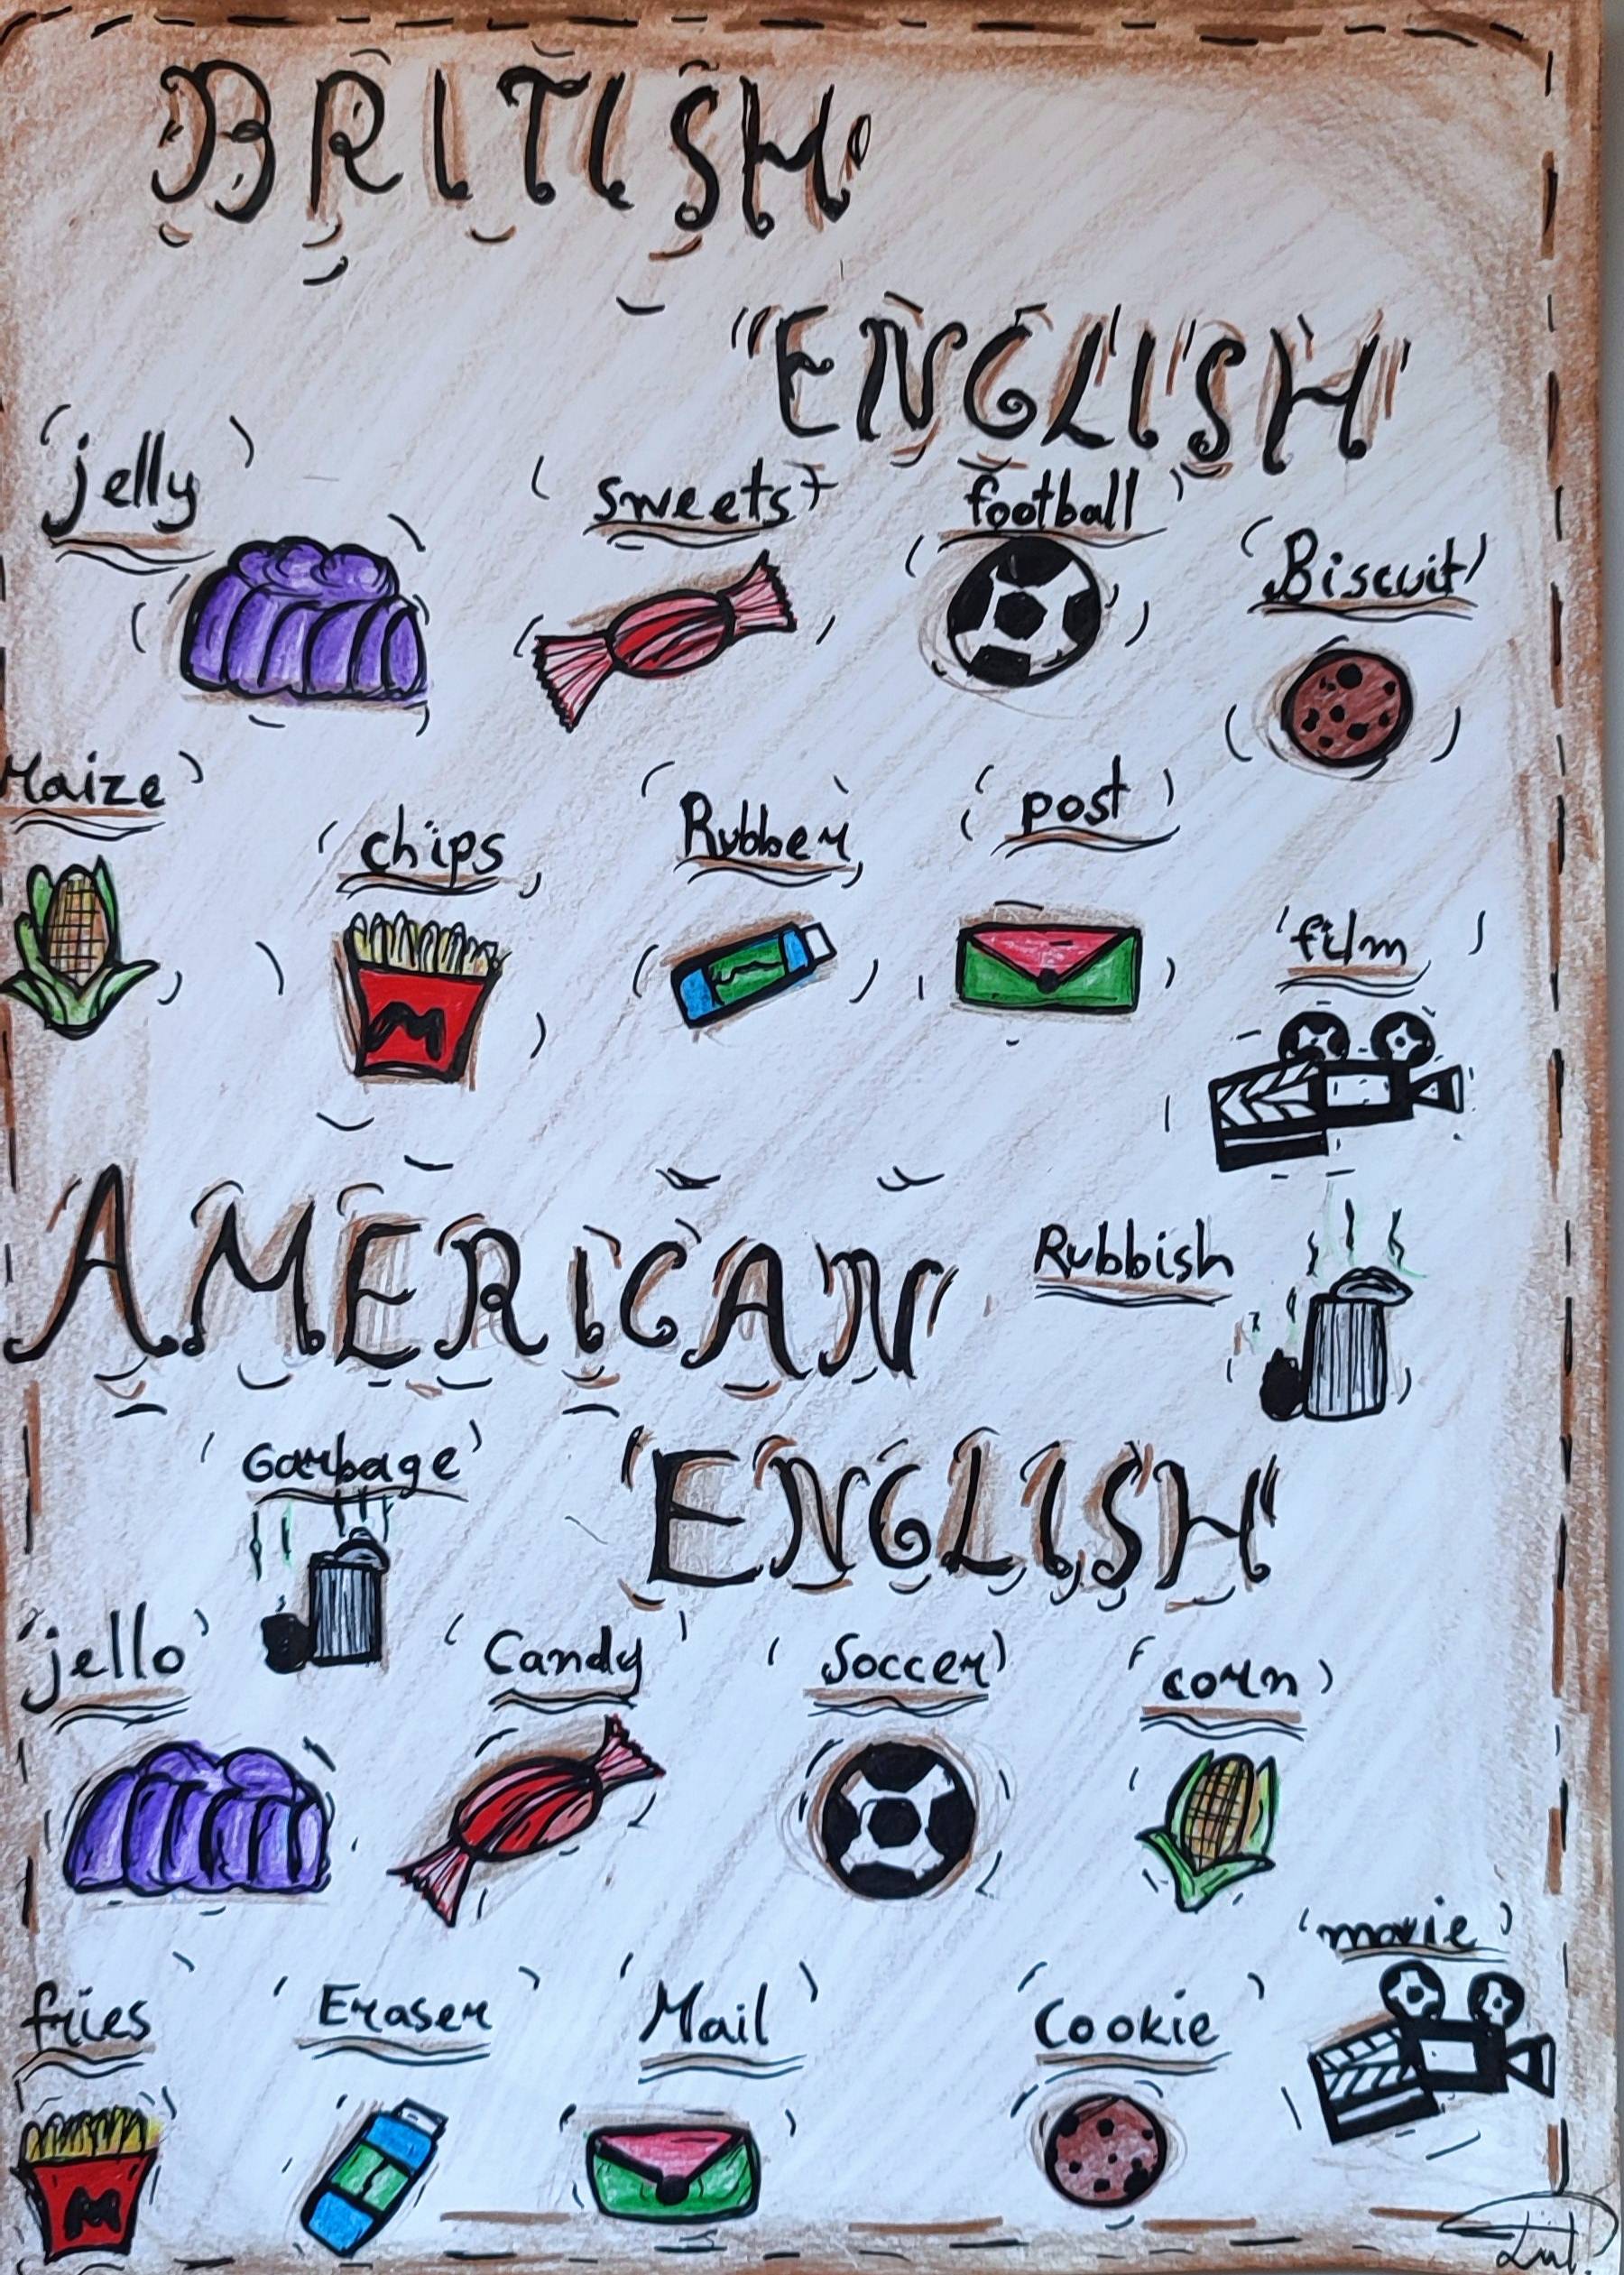 BRITISH
"ENGLISH"
jelly
sweets
football
Biscuit
Maize
chips
Rubber
post
film
M
AMERICAN
Rubbish
Garbage
"ENGLISH"
jello
Candy
Soccer
corn
movie
fries
Eraser
Mail
Cookie
M